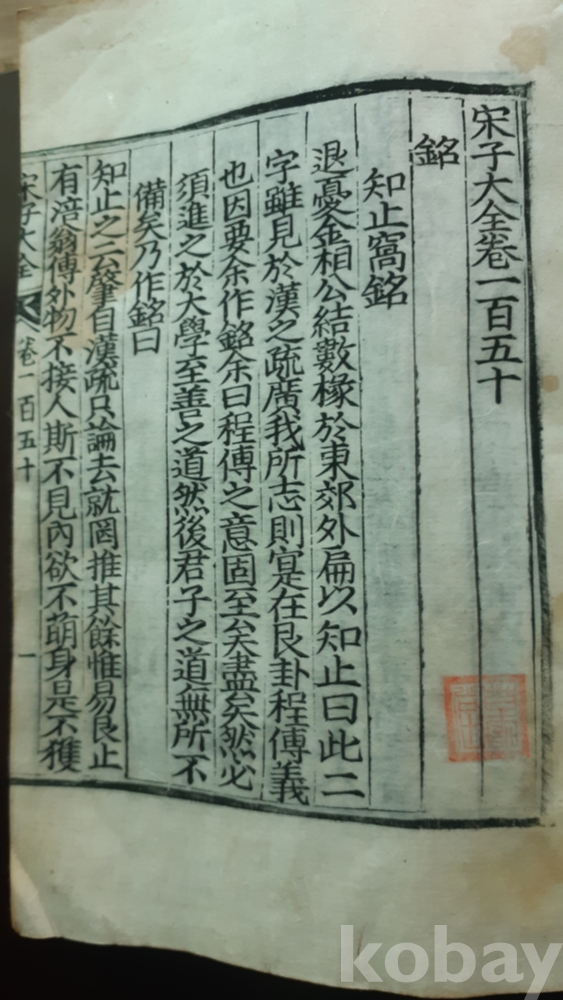 宋子大全卷一百五十
銘
知止窩銘
退憂金相公結數椽於東郊外扁以知止曰此二
字雖見於漢之疏廣我所志則寔在艮卦程傳義
也因要余作銘余曰程傳之意固至矣盡矣然必
須進之於大學至善之道然後君子之道無所不
備矣乃作銘曰
知止之云肇自漢疏只論去就罔推其餘惟易艮止
有涪翁傳外物不接人斯不見內欲不萌身是不獲
宋子大全 卷一百五十 一
kobay